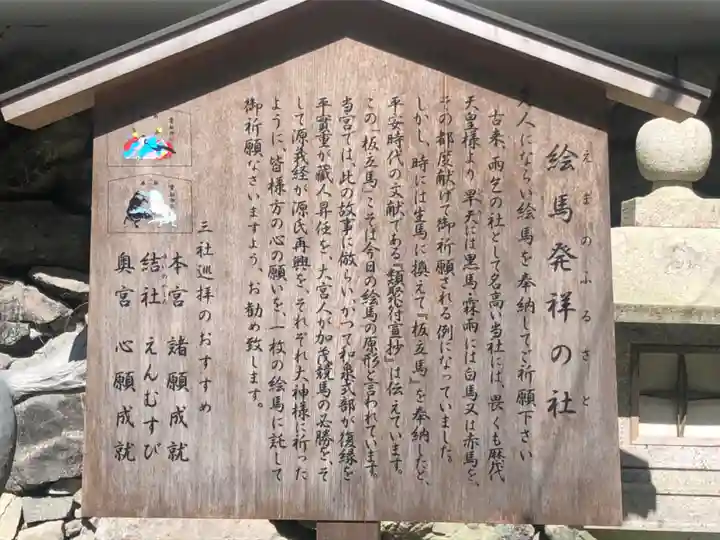 えまのふるさと
絵馬発祥の社
先人にならい絵馬を奉納してご祈願下さい
古来、雨乞の社として名高い当社には、畏くも歴代
天皇様より、旱天には黒馬、霖雨には白馬又は赤馬を、
その都度献げて御祈願される例になっていました。
しかし、時には生馬に換えて『板立馬』を奉納したと、
平安時代の文献である『類聚符宣抄』は伝えています。
この「板立馬」こそは今日の絵馬の原形と言われています。
当宮では、此の故事に倣らいかつて和泉式部が復縁を
平實重が蔵人昇任を、大宮人が加茂競馬の必勝を、そ
して源義経が源氏再興を、それぞれ大神様に祈った
ように、皆様方の心の願いを、一枚の絵馬に託して
御祈願なさいますよう、お勧め致します。
三社巡拝のおすすめ
本宮 諸願成就
結社 えんむすび
奥宮 心願成就